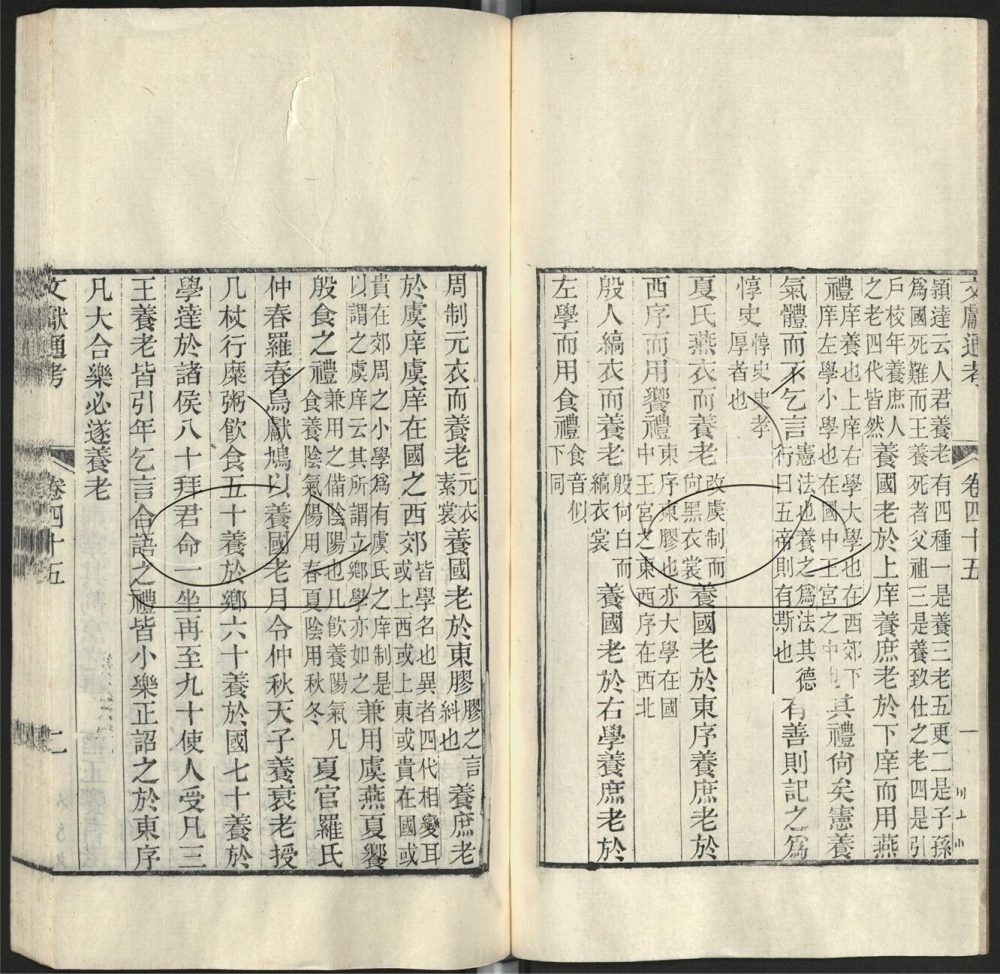 文獻通考 卷四十五 一
穎達云人君養老有四種一是養三老五更二是子孫
為國死難而王養死者父祖三是養致仕之老四是引
戶校年養庶人之老四代皆然養國老於上庠養庶老於下庠而用燕
禮庠養也上庠右學大學也在西郊下庠左學小學也在國中王宮之中其禮尙矣憲養
氣體而不乞言憲法也養之為法其德行曰五帝則有斯也有善則記之為
惇史惇史史孝厚者也
夏氏燕衣而養老改虞制而尙黑衣裳養國老於東序養庶老於
西序而用饗禮東序東膠也亦大學在國中王宮之東西序在西北
殷人縞衣而養老殷尙白而縞衣裳養國老於右學養庶老於
左學而用食禮食音似下同
周制元衣而養老元衣素裳養國老於東膠膠之言糾也養庶老
於虞庠虞庠在國之西郊皆學名也異者四代相變耳或上西或上東或貴在國或
貴在郊周之小學為有虞氏之庠制是以謂之虞庠云其所謂立鄉學亦如之兼用虞燕夏饗
殷食之禮兼用之備陰陽也凡飮養陽氣凡食養陰氣陽用春夏陰用秋冬夏官羅氏
仲春羅春鳥獻鳩以養國老月令仲秋天子養衰老授
几杖行糜粥飮食五十養於鄉六十養於國七十養於
學達於諸侯八十拜君命一坐再至九十使人受凡三
王養老皆引年乞言合語之禮皆小樂正詔之於東序
凡大合樂必遂養老
文獻通考 卷四十五 二